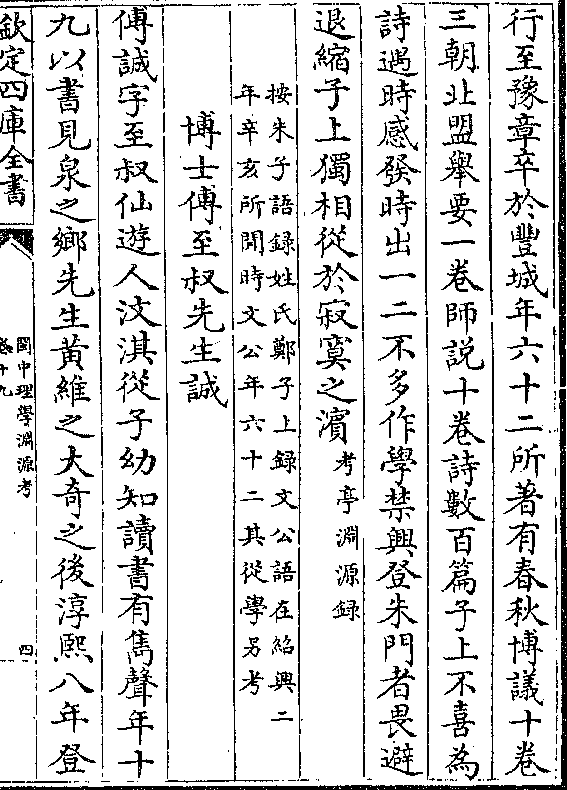 行至豫章卒於豐城年六十二所著有春秋博議十卷
三朝北盟舉要一卷師説十卷詩數百篇子上不喜為
詩遇時感發時出一二不多作學禁興登朱門者畏避
退縮子上獨相從於寂寞之濱考亭淵源録
按朱子語録姓氏鄭子上録文公語在紹興二
年辛亥所聞時文公年六十二其從學另考
博士傅至叔先生誠
傅誠字至叔仙遊人汶淇從子幼知讀書有雋聲年十
九以書見泉之鄉先生黃維之大奇之後淳熙八年登
欽定四庫全書
閩中理學淵源考
卷十九
四